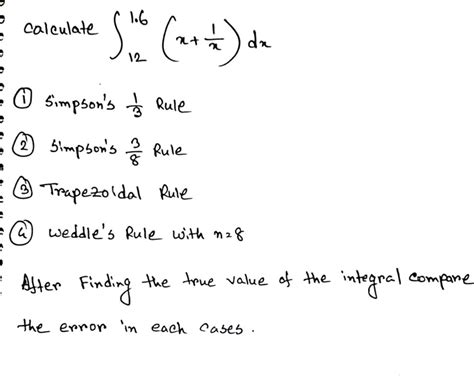 calculate ∫₁₂^1.6 (x + 1/x) dx
① Simpson's 1/3 Rule
② Simpson's 3/8 Rule
③ Trapezoidal Rule
④ Weddle's Rule with n=8
After Finding the true value of the integral compare
the error in each cases.